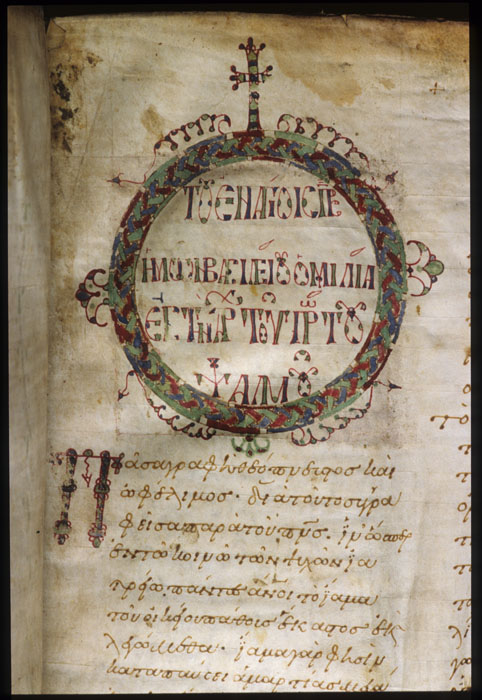 ΤΟΥ ΕΝ ΑΓΙΟΙΣ ΠΡΣ
ΗΜΩΝ ΒΑΣΙΛΕΙΟΥ ΟΜΙΛΙΑ
ΕΙΣ ΤΗΝ ΑΡΧ ΤΟΥ ΠΡΩΤΟΥ
ΨΑΛΜΟΥ
Πᾶσα γραφὴ θεόπνευστος καὶ
ὠφέλιμος· διὰ τοῦτο συγγρα
φεῖσα παρὰ τοῦ πνς· ἵν' ὥσπερ
ἐν τῷ κοινῷ τῶν ψυχῶν ἰα
τρείῳ πάντες ἄνοι τὸ ἴαμα
τοῦ οἰκείου πάθους ἕκαστος ἐκ
λεγώμεθα· ἴαμα γάρ φησιν
καταπαύσει ἁμαρτίας